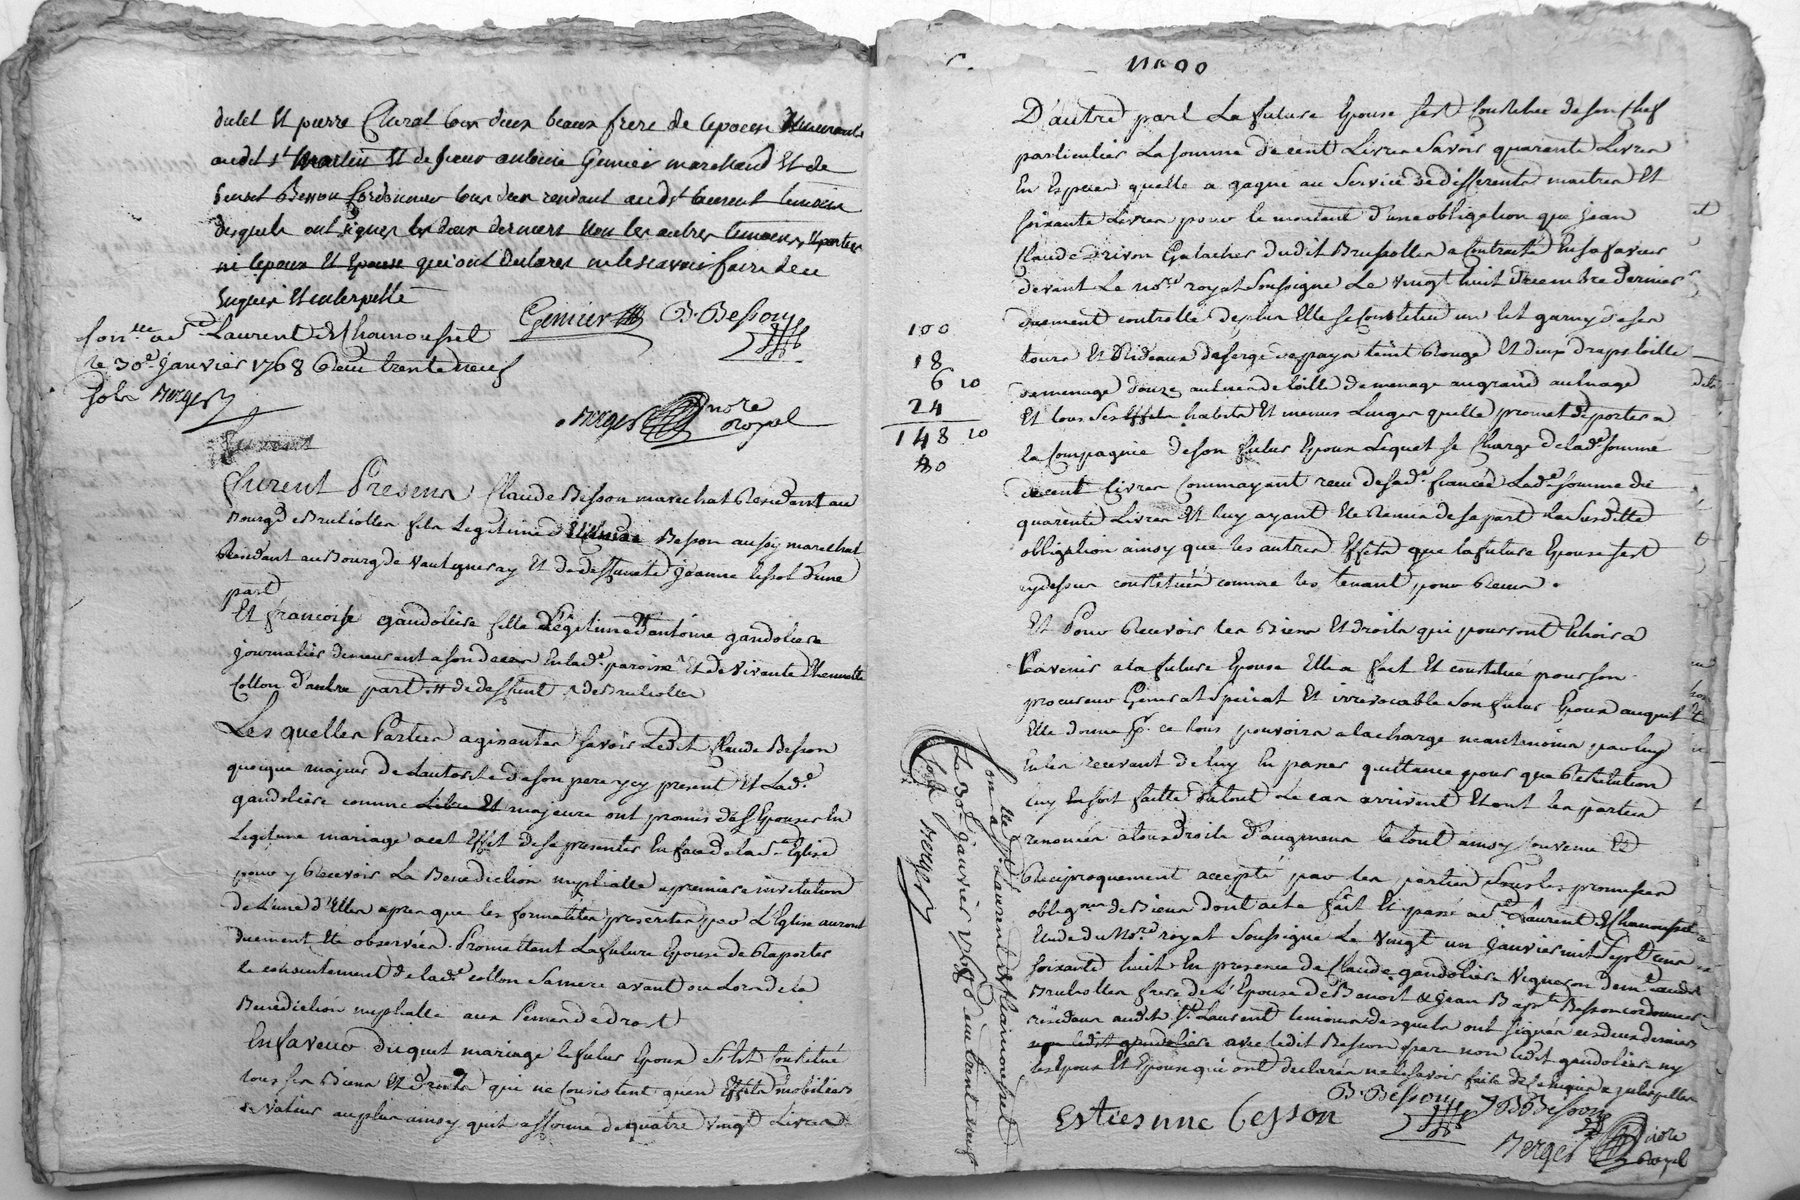 dulet Et pierre Clurat tous deux beaux frere de lepoux demeurants
audit st martin Et de sieur antoine Genier marchand Et de
benoit Besson Cordonnier tous deux residant audt st Laurent temoins
desquels ont signer les deux derniers non les autres temoins, Eportier
ni lepoux Et Epouse qui ont declarer ne le scavoir faire de ce
Enquis Et interpellé
Genier B. Besson
Con.lle a st Laurent de Chamousset
le 30e janvier 1768 Reçu trente neuf
sols Berger
Berger nore royal
furent
furent Presens Claude Besson marechal Residant au
Bourg de Brulioles fils Legitime d'Etienne Besson aussy marechal
Residant au Bourg de Vaugneray Et de deffunte Jeanne d'une
part
Et francoise gandoliere fille Legitime d'antoine gandoliere
journalier demeurant a son deces En lad.e paroisse Et de vivante Etiennette
Collon d'autre part de deffunt de Brulioles
Les quelles Parties agissantes savoir Ledit Claude Besson
quoique majeur de Lautorité de son pere ycy present Et Lad.e
gandoliere comme Libre Et majeure ont promis de S'Epouser En
Legitime mariage a cet Effet de se presenter En face de la Ste Eglise
pour y Recevoir La Benediction nuptialle a premiere invitation
de L'une d'Elles apres que les formalités prescrites par L'Eglise auront
duement Eté observées. Promettant La future Epouse de Raporter
le consentement de lad.e collon sa mere avant ou Lors de la
Benediction nuptialle aux Peines de droit
En faveur duquel mariage le futur Epoux s'Est Constitué
tous ses Biens Et droits qui ne Consistent qu'en Effets mobiliers
de valeur au plus ainsy quil assomme de quatre vingt Livres
D'autre part La future Epouse s'est Constituée de son Chef
particulier La somme de cent Livres Savoir quarante Livres
En Especes quelle a gagné au Service de differents maitres Et
soixante Livres pour le montant d'une obligation que jean
Claude Brulioles a Contracté En sa faveur
devant Le nore royal Soussigné Le vingt huit Decembre dernier
duement controllé de plus Elle se Constitue un lit garny de ses
tours Et Rideaux de serge de pays teint Rouge Et deux draps toille
de menage douze aulnes de toille de menage au grand aulnage
Et tous ses Effets habits Et menus Linges quelle promet de porter a
la Compagnie de son futur Epoux Lequel se Charge de lad.e somme
de cent Livres Comme ayant reçu de sad.e fiancée Lad.e somme de
quarente Livres Et luy ayant Eté Remis de sa part La Susditte
obligation ainsy que les autres Effets que la future Epouse s'est
cydessus constitués comme les tenant pour Reçus.
Et Pour Recevoir les Biens Et droits qui pourront Echoir a
L'avenir a la future Epouse Elle a fait Et constitué pour son
procureur General Special Et irrevocable Son futur Epoux auquel
Elle donne pr. ce tous pouvoirs a la charge neantmoins par luy
En les recevant de luy En passer quittance pour que Restitution
luy En soit faitte du tout Le cas arrivant Et ont les parties
renoncées a tous droits d'augment le tout ainsy convenu Et
Reciproquement accepté par les parties Sous les promesses
oblig.on de Biens dont acte fait Et passé a st Laurent de Chamousset
Etude du nore royal Soussigné Le vingt un janvier mil Sept cent
soixante huit En presence de Claude gandoliere vigneron demt audit
Brulioles frere de L'Epouse de Benoit & jean Bapt. Besson cordonniers
residens audit St Laurent temoins desquels ont signés ces deux derniers
non ledit gandoliere avec ledit Besson pere non ledit gandoliere ny
les Epoux Et Epouse qui ont declarés ne le savoir faire de ce Enquis & interpellés
B. Besson JB Besson
Estienne besson
Berger nore royal
100
18
6 10
24
148 10
80
Con.lle a st Laurent de Chamousset
Le 30e janvier 1768 Reçu trente neuf
sols Berger